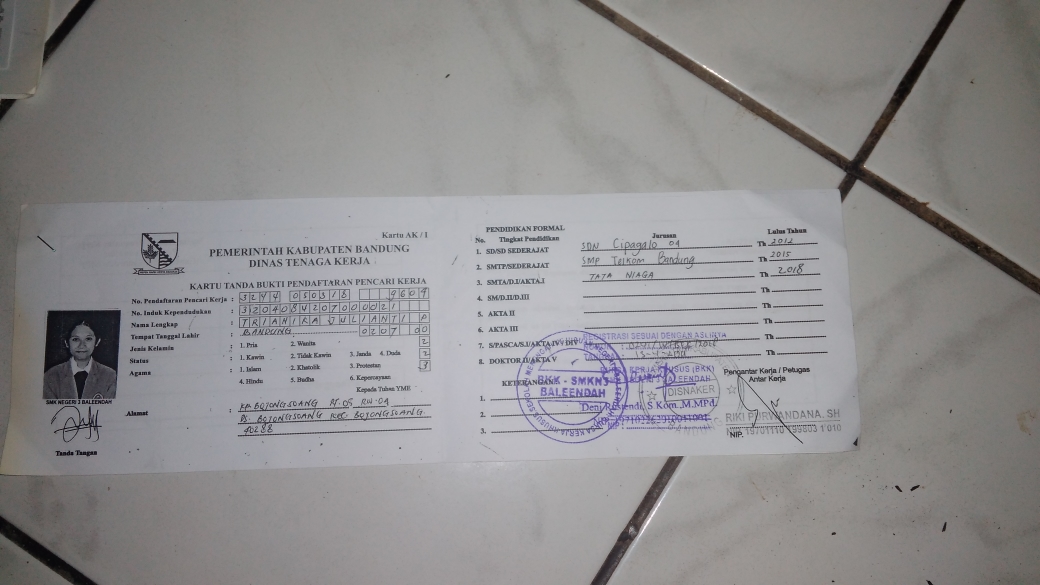 Kartu AK / 1
PEMERINTAH KABUPATEN BANDUNG
DINAS TENAGA KERJA
KARTU TANDA BUKTI PENDAFTARAN PENCARI KERJA
No. Pendaftaran Pencari Kerja : 3244 050318 9604
No. Induk Kependudukan : 3204084207000021
Nama Lengkap : TRIANIRA JULIANTI P
Tempat Tanggal Lahir : BANDUNG 0207 00
Jenis Kelamin : 1. Pria 2. Wanita 2
Status : 1. Kawin 2. Tidak Kawin 3. Janda 4. Duda 2
Agama : 1. Islam 2. Khatolik 3. Protestan 3
4. Hindu 5. Budha 6. Kepercayaan
Kepada Tuhan YME
SMK NEGERI 3 BALEENDAH
Alamat : KP. BOJONGSOANG RT.05 RW.04
DS. BOJONGSOANG KEC. BOJONGSOANG
40288
Tanda Tangan
PENDIDIKAN FORMAL
No. Tingkat Pendidikan Jurusan Lulus Tahun
1. SD/SD SEDERAJAT SDN Cipagalo 04 Th 2012
2. SMTP/SEDERAJAT SMP Telkom Bandung Th 2015
3. SMTA/D.I/AKTA.I TATA NIAGA Th 2018
4. SM/D.II/D.III Th
5. AKTA II Th
6. AKTA III Th
7. S/PASCA/S.I/AKTA IV/ Th
8. DOKTOR II/AKTA V Th
REGISTRASI SESUAI DENGAN ASLINYA
KETERANGAN
1.
2.
3.
BKK - SMKN 3
BALEENDAH
KERJA KHUSUS (BKK)
BALEENDAH
Deni S.Kom.,M.MPd.
Pengantar Kerja / Petugas
Antar Kerja
DISNAKER
RIKI PURWANDANA. SH
NIP. 19701110 199803 1 010